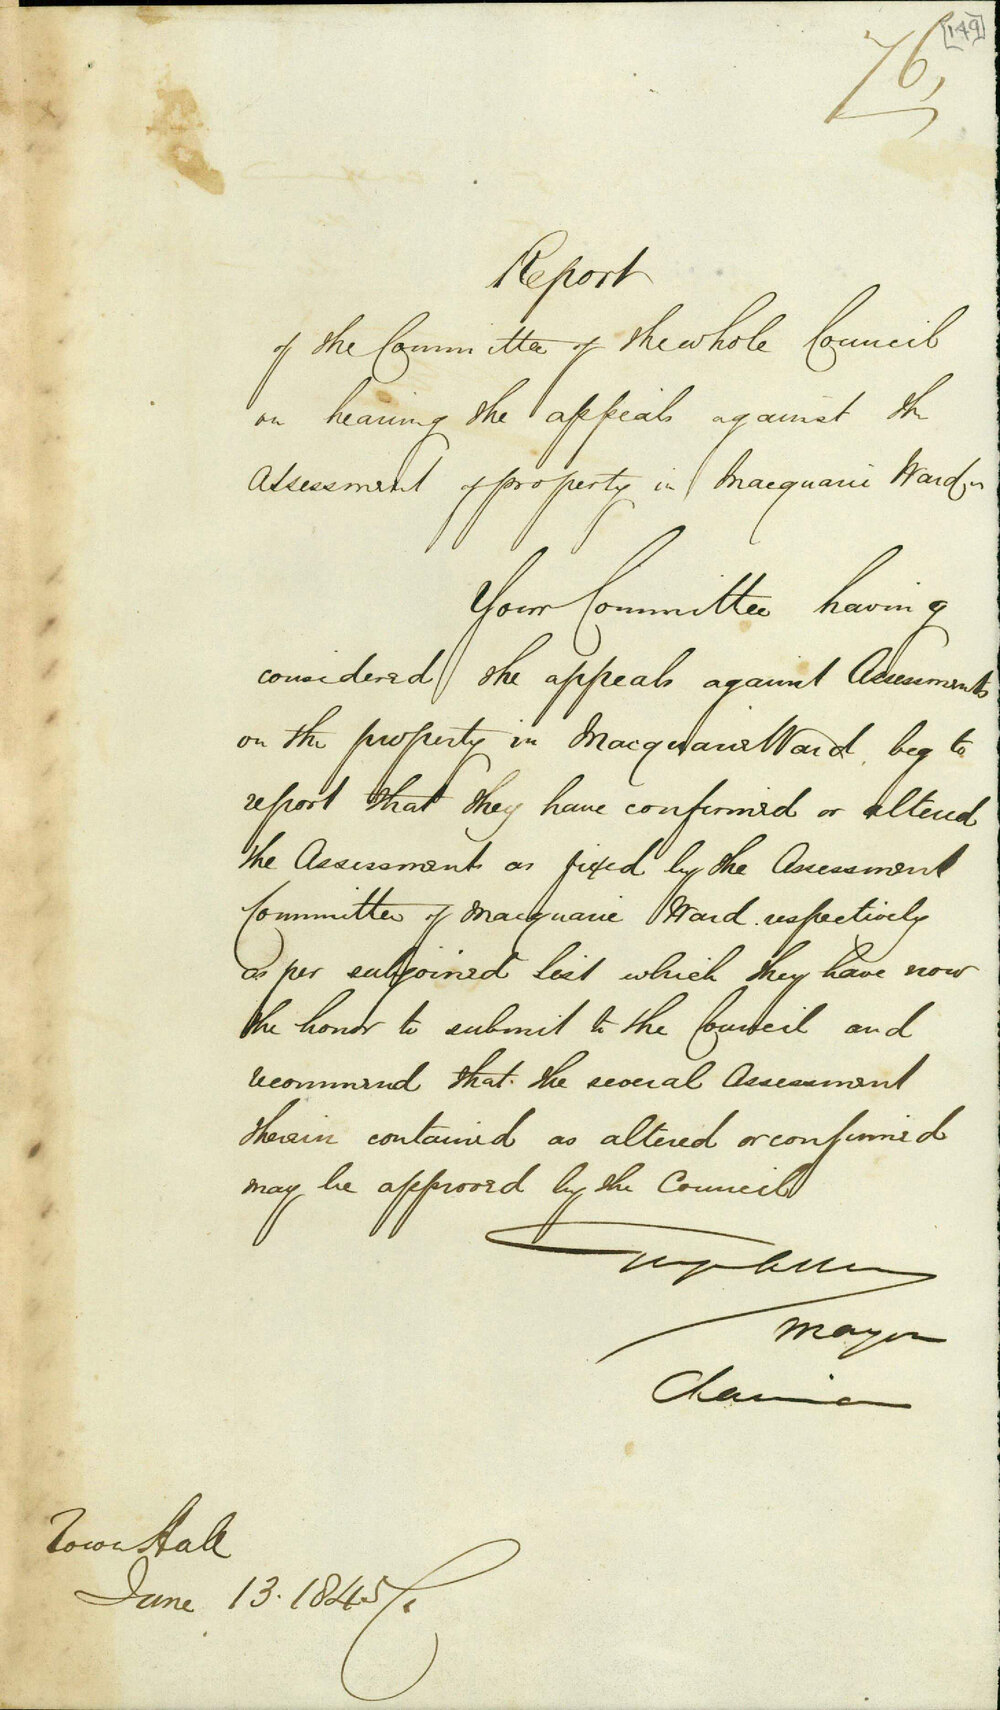 [149]
76,
Report
of the Committee of the whole Council
on hearing the appeals against the
Assessment of property in Macquarie Ward
Your Committee having
considered the appeals against Assessments
on the property in Macquarie Ward beg to
report that they have confirmed or altered
the Assessments as fixed by the Assessment
Committee of Macquarie Ward respectively
as per subjoined List which they have now
the honor to submit to the Council and
recommend that the several Assessment
therein contained as altered or confirmed
may be approved by the Council
Mayor
Chairman
Town Hall
June 13. 1845